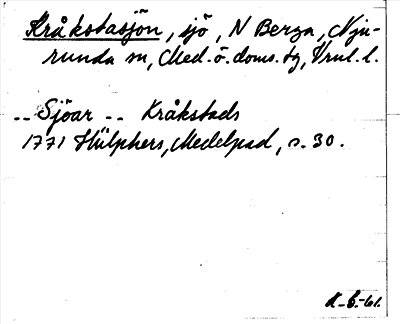 Kråkstasjön, sjö, N Berge, Nju-
runda sn, Med. ö. doms. tg, Vrnl. l.
-- Sjöar -- Kråkstads
1771 Hülphers, Medelpad, s. 30.